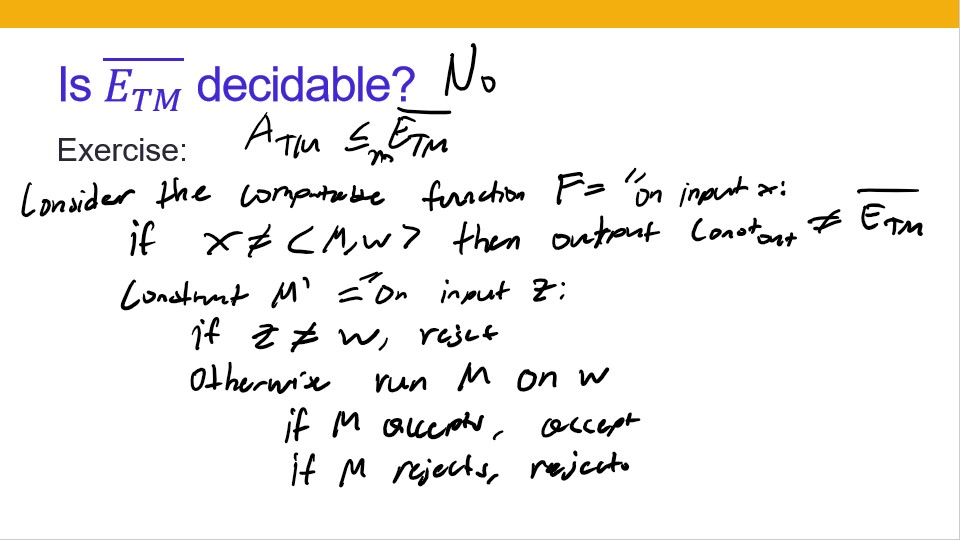 Is $\overline{E_{TM}}$ decidable? No
Exercise: A_TM ≤_m $\overline{E_{TM}}$
Consider the computable function F = "on input x:
if x ≠ <M,w> then output const_out ≠ $\overline{E_{TM}}$
Construct M' = "on input z:
if z ≠ w, reject
Otherwise run M on w
if M accepts, accept
if M rejects, reject.